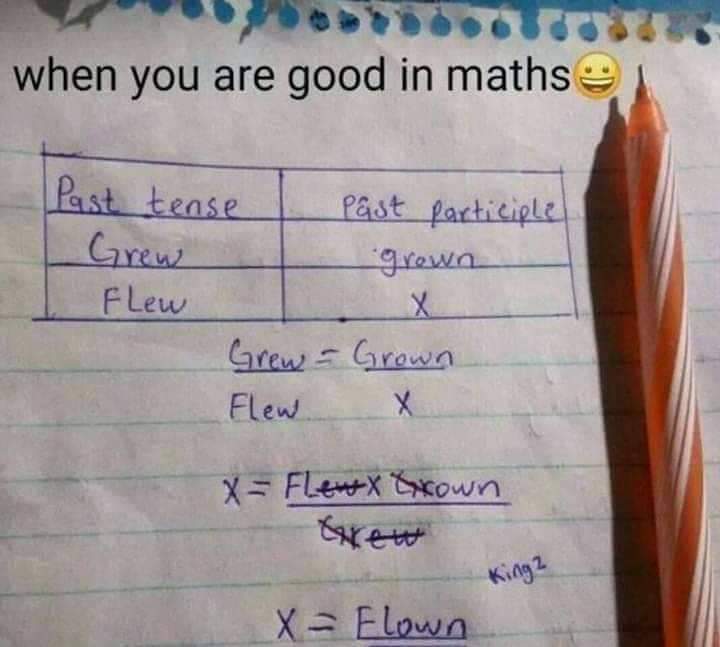 when you are good in maths😀
Past tense Past participle
Grew grown
FLew X
Grew = Grown
Flew X
X = FLew X Grown
Grew
King²
X = Flown